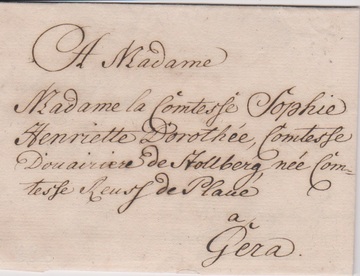 A Madame
Madame la Comtesse Sophie
Henriette Dorothée, Comtesse
Douairiere de Stollberg, née Com-
tesse Reuss de Plaue
a
Gera.